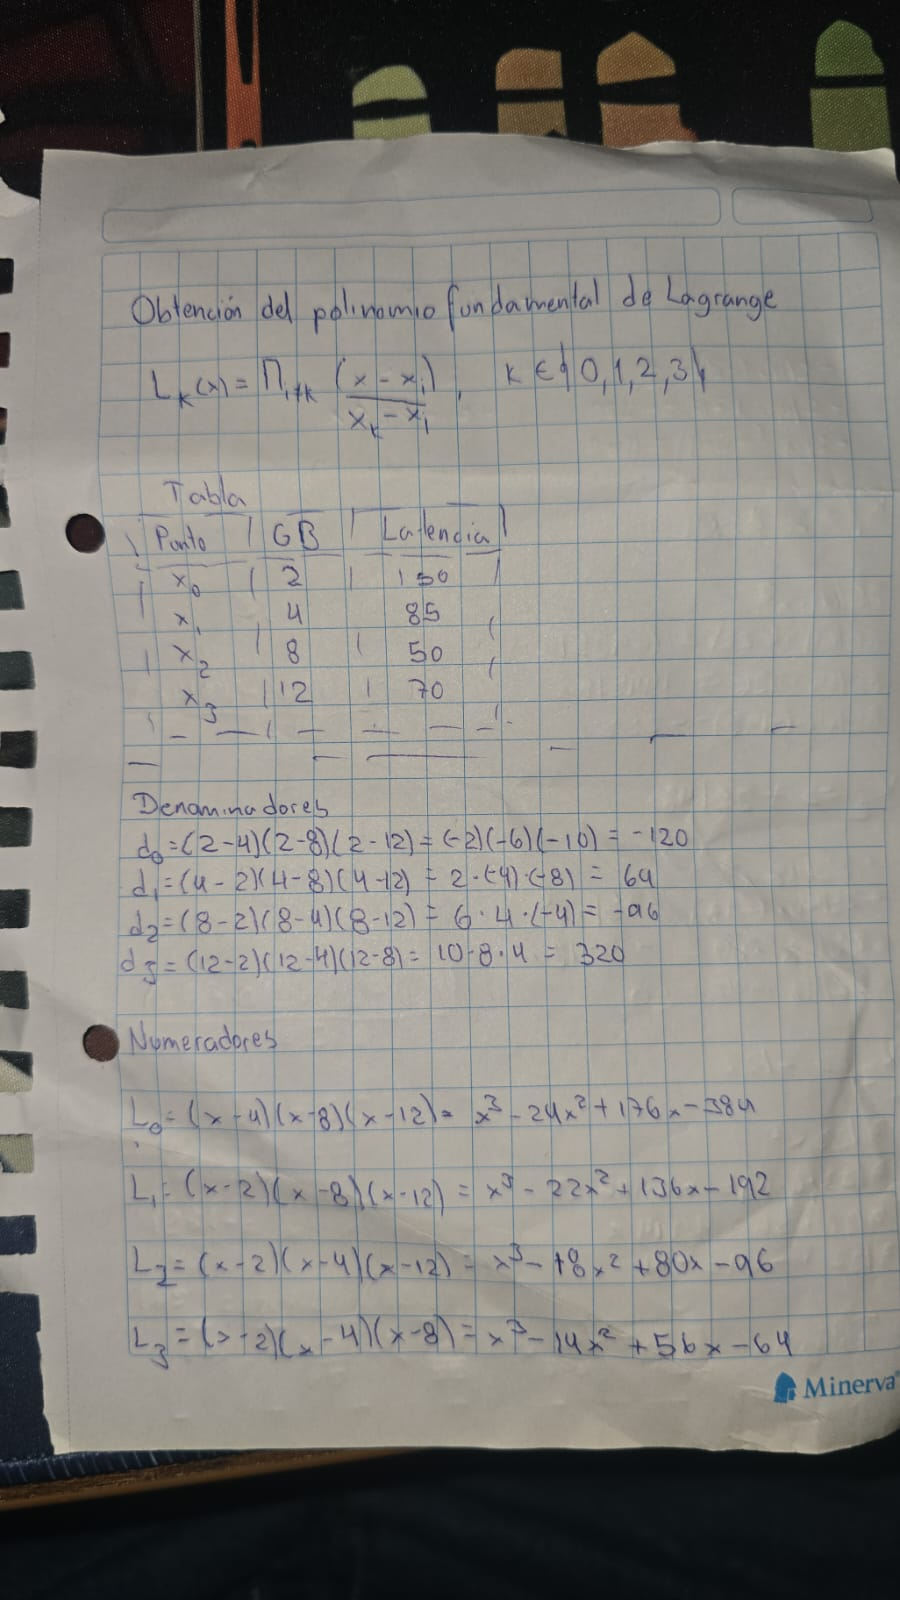 Obtención del polinomio fundamental de Lagrange
L_k(x) = Π_{i≠k} (x - x_i) / (x_k - x_i), k ∈ {0,1,2,3}
Tabla
Punto | GB | Latencia
x_0 | 2 | 150
x_1 | 4 | 85
x_2 | 8 | 50
x_3 | 12 | 70
Denominadores
d_0 = (2-4)(2-8)(2-12) = (-2)(-6)(-10) = -120
d_1 = (4-2)(4-8)(4-12) = 2·(-4)·(-8) = 64
d_2 = (8-2)(8-4)(8-12) = 6·4·(-4) = -96
d_3 = (12-2)(12-4)(12-8) = 10·8·4 = 320
Numeradores
L_0 = (x-4)(x-8)(x-12) = x³ - 24x² + 176x - 384
L_1 = (x-2)(x-8)(x-12) = x³ - 22x² + 136x - 192
L_2 = (x-2)(x-4)(x-12) = x³ - 18x² + 80x - 96
L_3 = (x-2)(x-4)(x-8) = x³ - 14x² + 56x - 64
Minerva